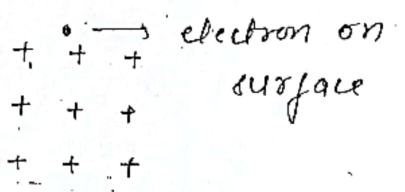 • → electron on
+ + +
surface
+ + +
+ + +